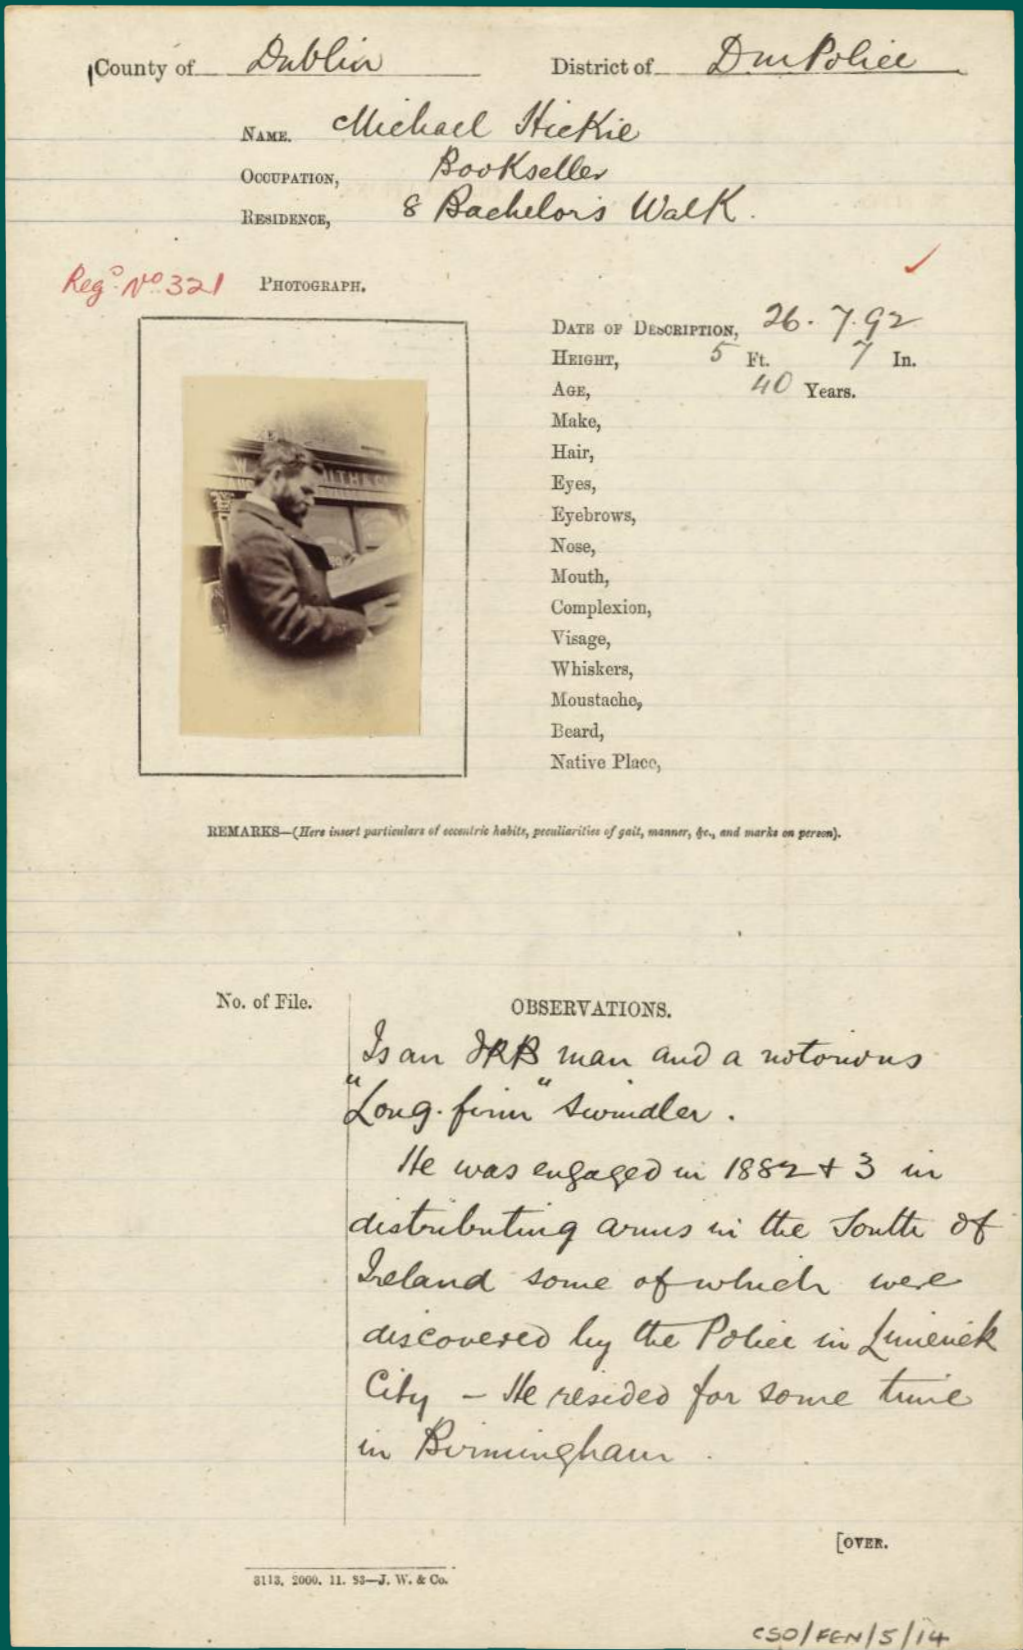 County of Dublin District of Dm Police
NAME. Michael Hickie
OCCUPATION, Bookseller
RESIDENCE, 8 Bachelors Walk.
Regd. No 321 PHOTOGRAPH.
ITH & C
DATE OF DESCRIPTION, 26. 7. 92
HEIGHT, 5 Ft. 7 In.
AGE, 40 Years.
Make,
Hair,
Eyes,
Eyebrows,
Nose,
Mouth,
Complexion,
Visage,
Whiskers,
Moustache,
Beard,
Native Place,
REMARKS—(Here insert particulars of eccentric habits, peculiarities of gait, manner, &c., and marks on person).
No. of File. OBSERVATIONS.
Is an IRB man and a notorious
"Long-firm" swindler.
He was engaged in 1882 & 3 in
distributing arms in the South of
Ireland some of which were
discovered by the Police in Limerick
City – He resided for some time
in Birmingham.
[OVER.
3113. 2000. 11. 93—J. W. & Co.
CSO/FEN/5/14